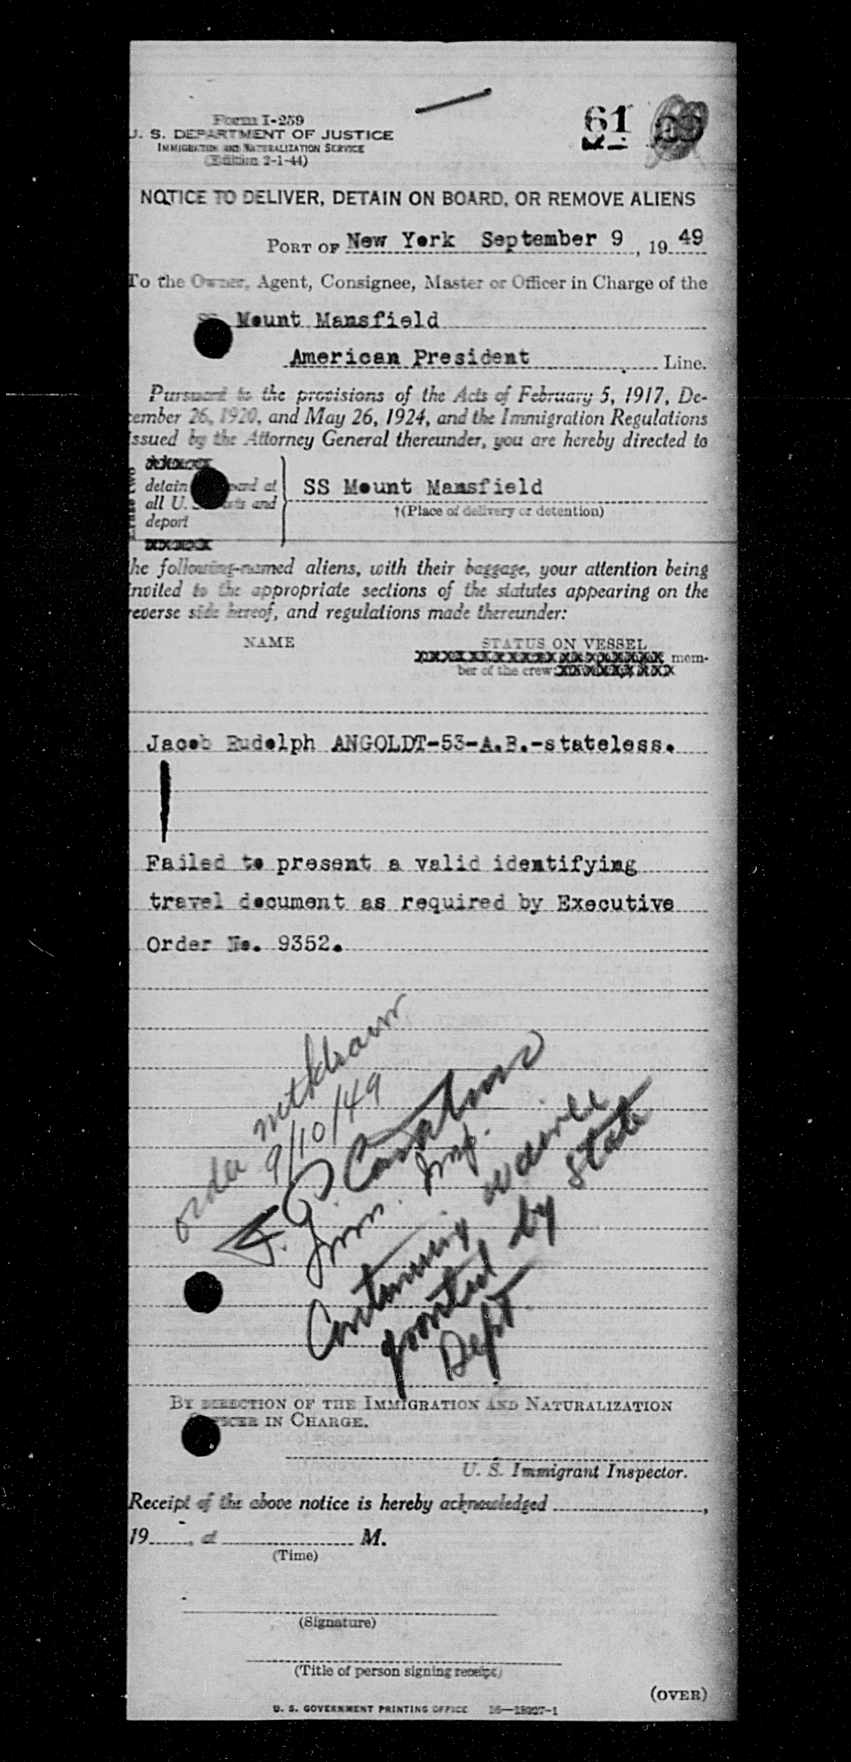 Form I-259
U. S. DEPARTMENT OF JUSTICE
IMMIGRATION AND NATURALIZATION SERVICE
(Edition 2-1-44)
61
NOTICE TO DELIVER, DETAIN ON BOARD, OR REMOVE ALIENS
PORT OF New York September 9, 1949
To the Owner, Agent, Consignee, Master or Officer in Charge of the
SS Mount Mansfield
American President Line.
Pursuant to the provisions of the Acts of February 5, 1917, De-
cember 26, 1920, and May 26, 1924, and the Immigration Regulations
issued by the Attorney General thereunder, you are hereby directed to
detain board at
all U. S. ports and
deport
SS Mount Mansfield
†(Place of delivery or detention)
the following-named aliens, with their baggage, your attention being
invited to the appropriate sections of the statutes appearing on the
reverse side hereof, and regulations made thereunder:
NAME STATUS ON VESSEL
mem-
ber of the crew
Jacob Rudolph ANGOLDT-53-A.B.-stateless.
Failed to present a valid identifying
travel document as required by Executive
Order No. 9352.
order withdrawn
9/10/49
Imm. Insp.
Continuing waiver
granted by State
Dept.
BY DIRECTION OF THE IMMIGRATION AND NATURALIZATION
OFFICER IN CHARGE.
U. S. Immigrant Inspector.
Receipt of the above notice is hereby acknowledged ,
19 , at M.
(Time)
(Signature)
(Title of person signing receipt)
(OVER)
U. S. GOVERNMENT PRINTING OFFICE